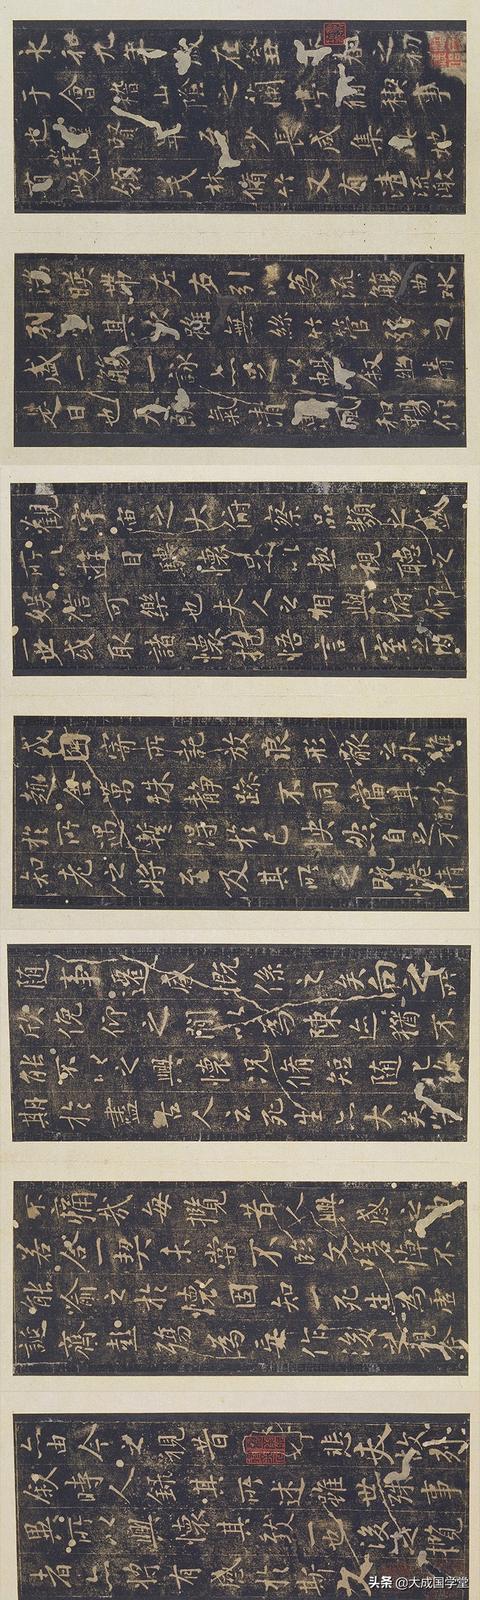 永和九年歲在癸丑暮春之初
于會稽山陰之蘭亭脩禊事
也羣賢畢至少長咸集此地
有崇山峻領茂林脩竹又有清流激
湍暎帶左右引以為流觴曲水
列坐其次雖無絲竹管弦之
盛一觴一詠亦足以暢敘幽情
是日也天朗氣清惠風和暢仰
觀宇宙之大俯察品類之盛
所以遊目騁懷足以極視聽之
娛信可樂也夫人之相與俯仰
一世或取諸懷抱悟言一室之內
或因寄所託放浪形骸之外雖
趣舍萬殊靜躁不同當其欣
於所遇暫得於己怏然自足不
知老之將至及其所之既惓情
隨事遷感慨係之矣向之所
欣俛仰之間以為陳迹猶不
能不以之興懷況脩短隨化終
期於盡古人云死生亦大矣豈
不痛哉每攬昔人興感之由
若合一契未嘗不臨文嗟悼不
能喻之於懷固知一死生為虛
誕齊彭殤為妄作後之視今
亦由今之視昔悲夫故列
敘時人錄其所述雖世殊事
異所以興懷其致一也後之攬
者亦將有感於斯文
头条 @大成国学堂